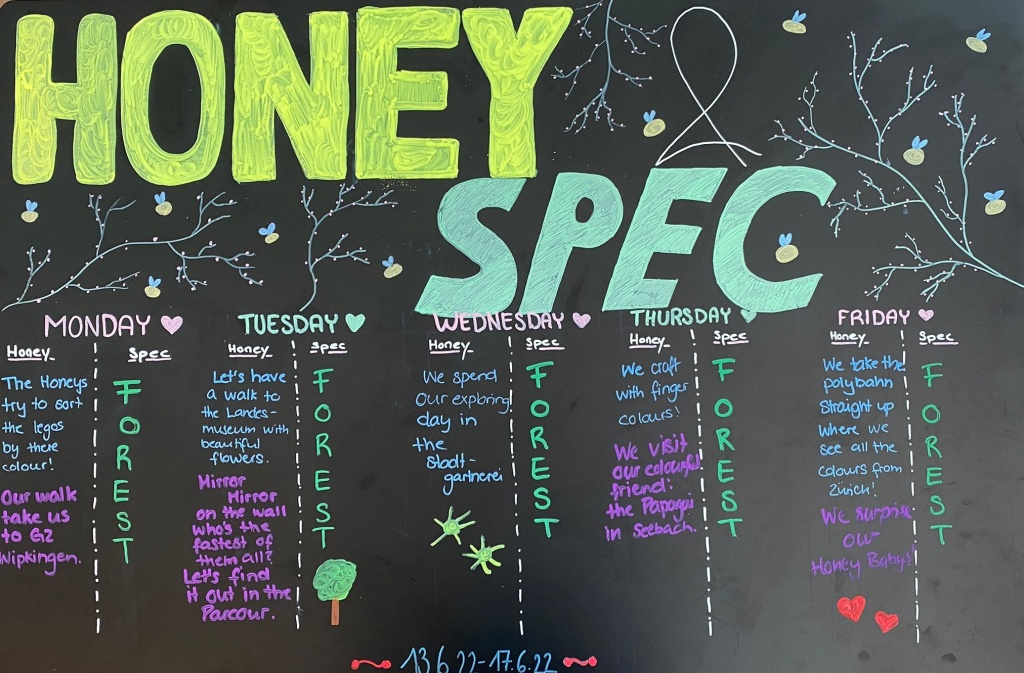 HONEY
SPEC
MONDAY
Honey
The Honeys
try to sort
the legos
by there
colour!
Our walk
take us
to G2
Wipkingen.
Spec
FOREST
TUESDAY
Honey
Let's have
a walk to
the Landes-
museum with
beautiful
flowers.
Mirror
Mirror
on the wall
who's the
fastest of
them all?
Let's find
it out in the
Parcour.
Spec
FOREST
WEDNESDAY
Honey
We spend
Our exploring
day in
the
stadt-
gartnerei
Spec
FOREST
THURSDAY
Honey
We craft
with finger
colours!
We visit
our colourful
friend:
the Papagei
in Seebach.
Spec
FOREST
FRIDAY
Honey
We take the
polybahn
Straight up
where we
see all the
colours from
Zürich!
We surprise
our
Honey Baby!
Spec
FOREST
13.6.22-17.6.22